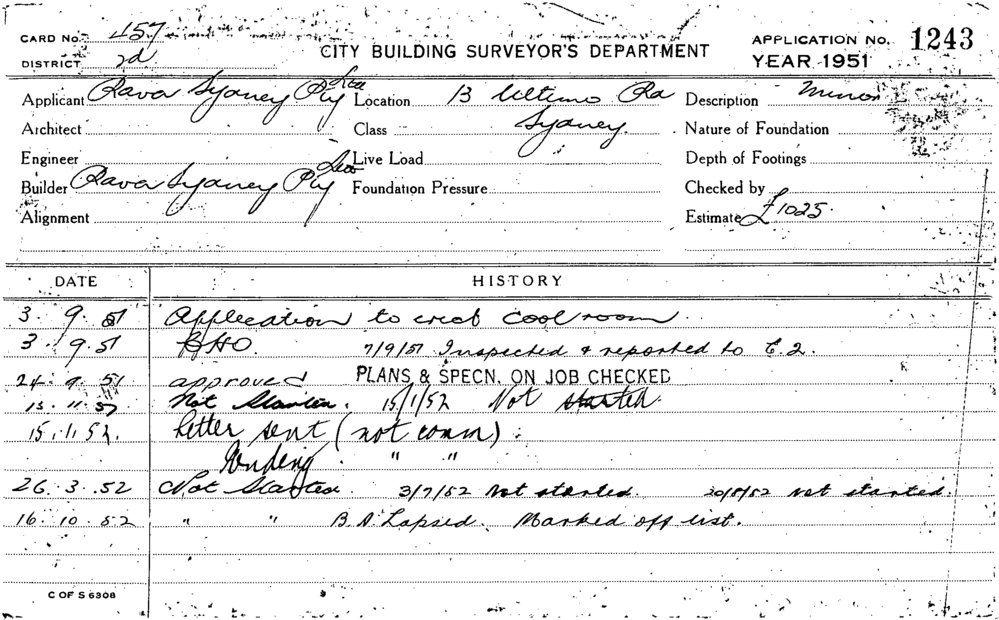 CARD No. 457
DISTRICT 2d
CITY BUILDING SURVEYOR'S DEPARTMENT
APPLICATION No. 1243
YEAR 1951
Applicant Rava Sydney Pty Ltd Location 13 Ultimo Rd Description Minor
Architect Class Sydney. Nature of Foundation
Engineer Live Load Depth of Footings
Builder Rava Sydney Pty Ltd Foundation Pressure Checked by
Alignment Estimate £1025.
DATE HISTORY
3. 9. 51 Application to erect cool room.
3. 9. 51 7/9/51 Inspected & reported to E.2.
24. 9. 51 approved PLANS & SPECN. ON JOB CHECKED
13. 11. 51 Not Started. 15/1/52 Not started.
15. 1. 52. Letter sent (not comm).
Pending " "
26. 3. 52 Not Started. 3/7/52 Not started. 20/8/52 not started.
16. 10. 52 " " B.A. Lapsed. Marked off list.
C OF S 6308